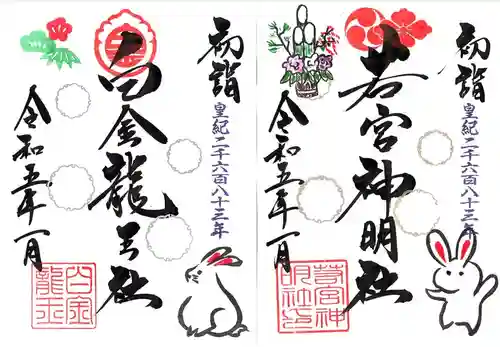 初詣
皇紀二千六百八十三年
若宮神明社
令和五年一月
若宮神
明社印
初詣
皇紀二千六百八十三年
白金龍王社
令和五年一月
白金
龍王